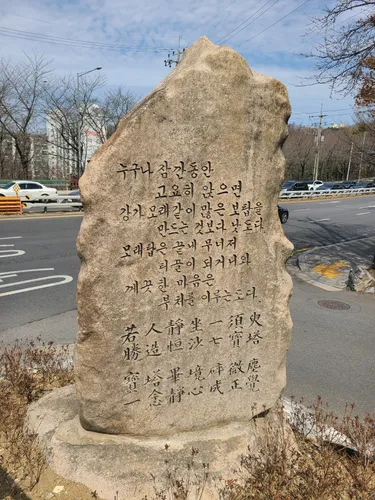 누구나 잠간동안
고요히 앉으면
강가모래같이 많은 보탑을
만드는것보다 낫도다
모래탑은 끝내 무너저
티끌이 되거니와
깨끗한 마음은
부처를 이루는도다
若人靜坐一須臾
勝造恒沙七寶塔
寶塔畢境碎微塵
一念靜心成正覺